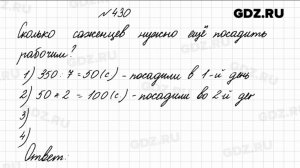 GDZ.RU
№430
Сколько саженцев нужно ещё посадить
рабочим?
1) 350:7=50(с) - посадили в 1-й день
2) 50*2=100(с) - посадили во 2-й ден
3)
4)
Ответ.